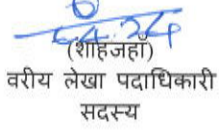 6.4.24
(शाहजहाँ)
वरीय लेखा पदाधिकारी
सदस्य